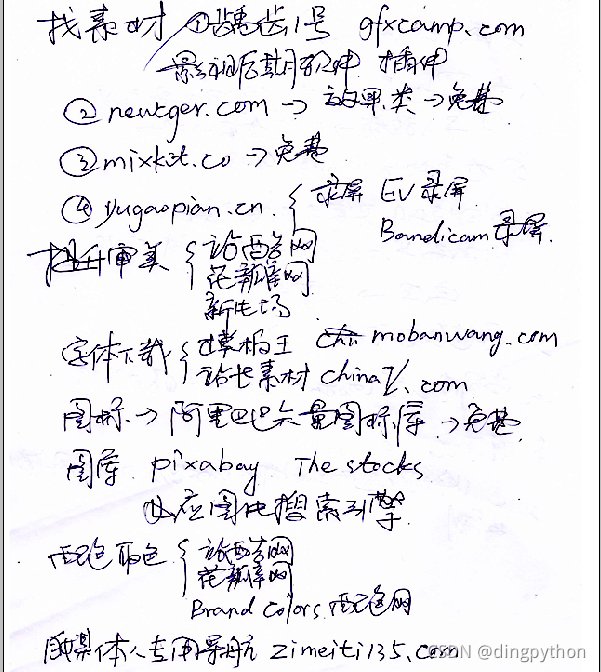 找素材 ①龋齿1号 gfxcamp.com
影视后期软件 插件
② newtger.com → 效果类 → 免费
③ mixkit.co → 免费
④ yugaopian.cn 录屏 EV录屏
Bandicam录屏
提升审美 站酷网
花瓣网
新片场
字体下载 模板王 mobanwang.com
站长素材 chinaz.com
图标 → 阿里巴巴矢量图标库 → 免费
图库 pixabay The stocks
必应图片搜索引擎
配色取色 站酷网
花瓣网
Brand Colors 配色网
自媒体人专用导航 zimeiti135.com
CSDN @dingpython